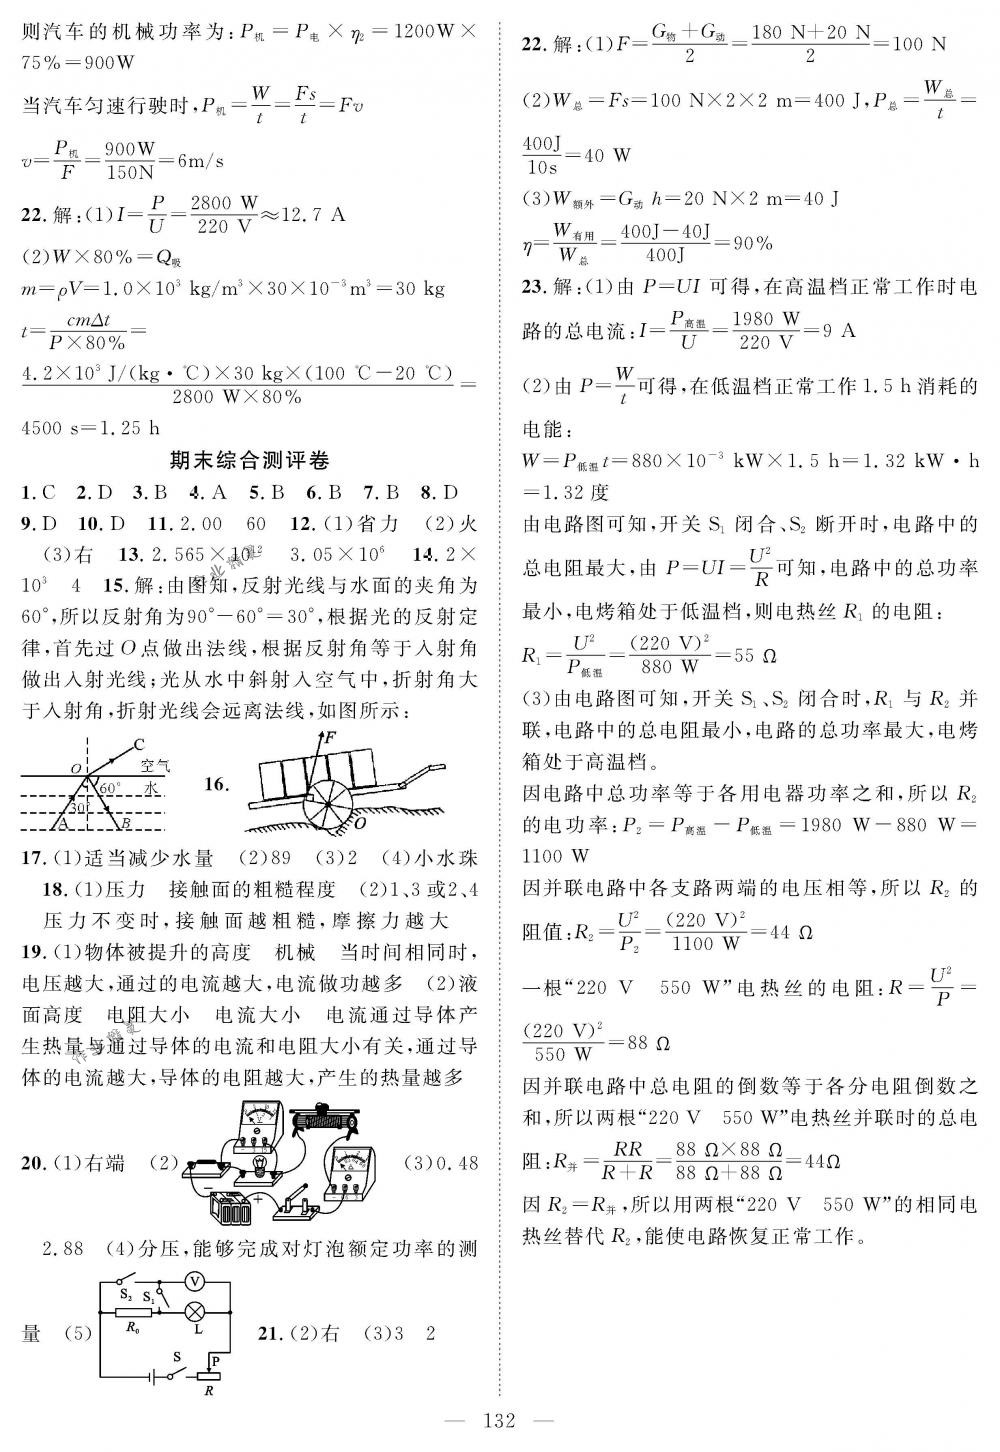 则汽车的机械功率为:P机=P电×η₂=1200W×
75%=900W
当汽车匀速行驶时,P机=W/t=Fs/t=Fv
v=P机/F=900W/150N=6m/s
22.解:(1)I=P/U=2800 W/220 V≈12.7 A
(2)W×80%=Q吸
m=ρV=1.0×10³ kg/m³×30×10⁻³m³=30 kg
t=cmΔt/P×80%=
4.2×10³ J/(kg·℃)×30 kg×(100 ℃-20 ℃)/2800 W×80%=
4500 s=1.25 h
期末综合测评卷
1.C 2.D 3.B 4.A 5.B 6.B 7.B 8.D
9.D 10.D 11.2.00 60 12.(1)省力 (2)火
(3)右 13.2.565×10¹² 3.05×10⁶ 14.2×
10³ 4 15.解:由图知,反射光线与水面的夹角为
60°,所以反射角为90°-60°=30°,根据光的反射定
律,首先过O点做出法线,根据反射角等于入射角
做出入射光线;光从水中斜射入空气中,折射角大
于入射角,折射光线会远离法线,如图所示:
C
O 空气
60° 水
30°
A B
16.
F
O
17.(1)适当减少水量 (2)89 (3)2 (4)小水珠
18.(1)压力 接触面的粗糙程度 (2)1、3或2、4
压力不变时,接触面越粗糙,摩擦力越大
19.(1)物体被提升的高度 机械 当时间相同时,
电压越大,通过的电流越大,电流做功越多 (2)液
面高度 电阻大小 电流大小 电流通过导体产
生热量与通过导体的电流和电阻大小有关,通过导
体的电流越大,导体的电阻越大,产生的热量越多
20.(1)右端 (2) (3)0.48
- +
2.88 (4)分压,能够完成对灯泡额定功率的测
量 (5)
V
S₂ S₁
R₀ L
S P
R
21.(2)右 (3)3 2
22.解:(1)F=G物+G动/2=180 N+20 N/2=100 N
(2)W总=Fs=100 N×2×2 m=400 J,P总=W总/t=
400J/10s=40 W
(3)W额外=G动 h=20 N×2 m=40 J
η=W有用/W总=400J-40J/400J=90%
23.解:(1)由 P=UI 可得,在高温档正常工作时电
路的总电流:I=P高温/U=1980 W/220 V=9 A
(2)由 P=W/t可得,在低温档正常工作1.5 h消耗的
电能:
W=P低温t=880×10⁻³ kW×1.5 h=1.32 kW·h
=1.32度
由电路图可知,开关 S₁ 闭合、S₂ 断开时,电路中的
总电阻最大,由 P=UI=U²/R可知,电路中的总功率
最小,电烤箱处于低温档,则电热丝 R₁ 的电阻:
R₁=U²/P低温=(220 V)²/880 W=55 Ω
(3)由电路图可知,开关 S₁、S₂ 闭合时,R₁ 与 R₂ 并
联,电路中的总电阻最小,电路的总功率最大,电烤
箱处于高温档。
因电路中总功率等于各用电器功率之和,所以 R₂
的电功率:P₂=P高温-P低温=1980 W-880 W=
1100 W
因并联电路中各支路两端的电压相等,所以 R₂ 的
阻值:R₂=U²/P₂=(220 V)²/1100 W=44 Ω
一根“220 V 550 W”电热丝的电阻:R=U²/P=
(220 V)²/550 W=88 Ω
因并联电路中总电阻的倒数等于各分电阻倒数之
和,所以两根“220 V 550 W”电热丝并联时的总电
阻:R并=RR/R+R=88 Ω×88 Ω/88 Ω+88 Ω=44Ω
因 R₂=R并,所以用两根“220 V 550 W”的相同电
热丝替代 R₂,能使电路恢复正常工作。
— 132 —